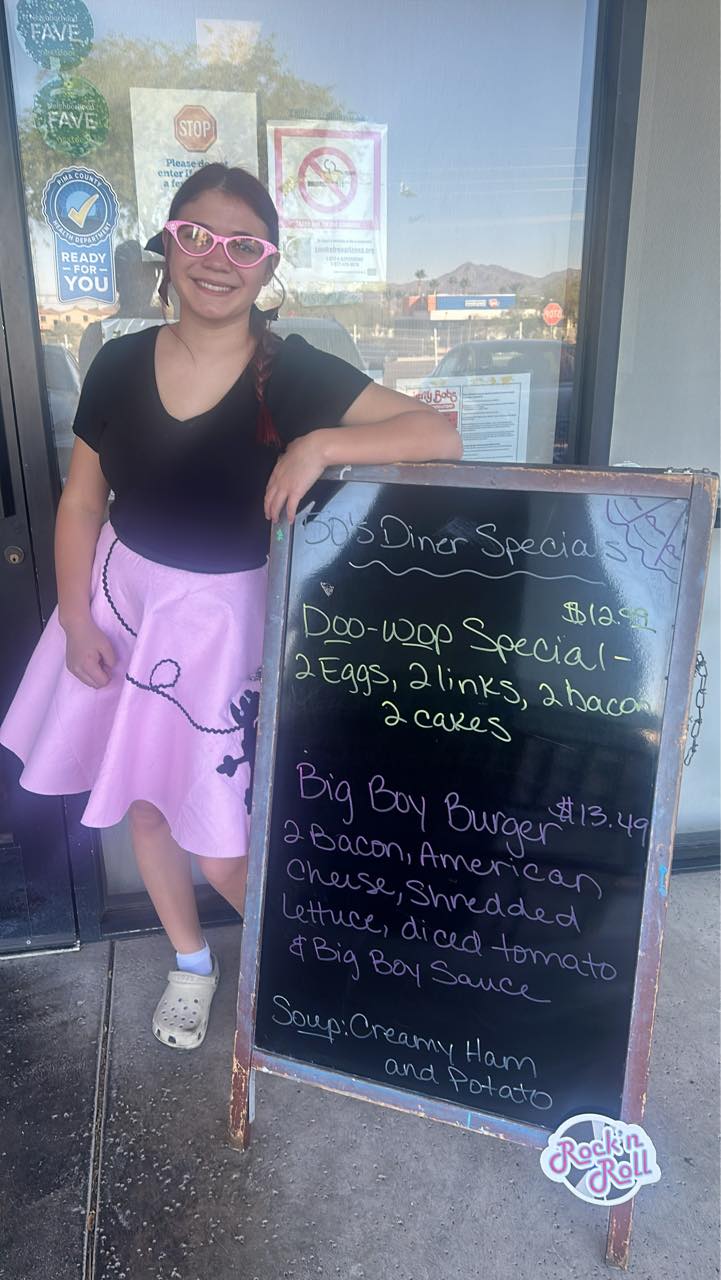 Neighborhood
FAVE
nextdoor
Neighborhood
FAVE
nextdoor
STOP
Please do not
enter if
a fe
PIMA COUNTY
HEALTH DEPARTMENT
READY
-FOR-
YOU
50's Diner Specials
$12.99
Doo-wop Special-
2 Eggs, 2 links, 2 bacon
2 cakes
Big Boy Burger $13.49
2 Bacon, American
Cheese, Shredded
Lettuce, diced tomato
& Big Boy Sauce
Soup: Creamy Ham
and Potato
Rock'n
Roll